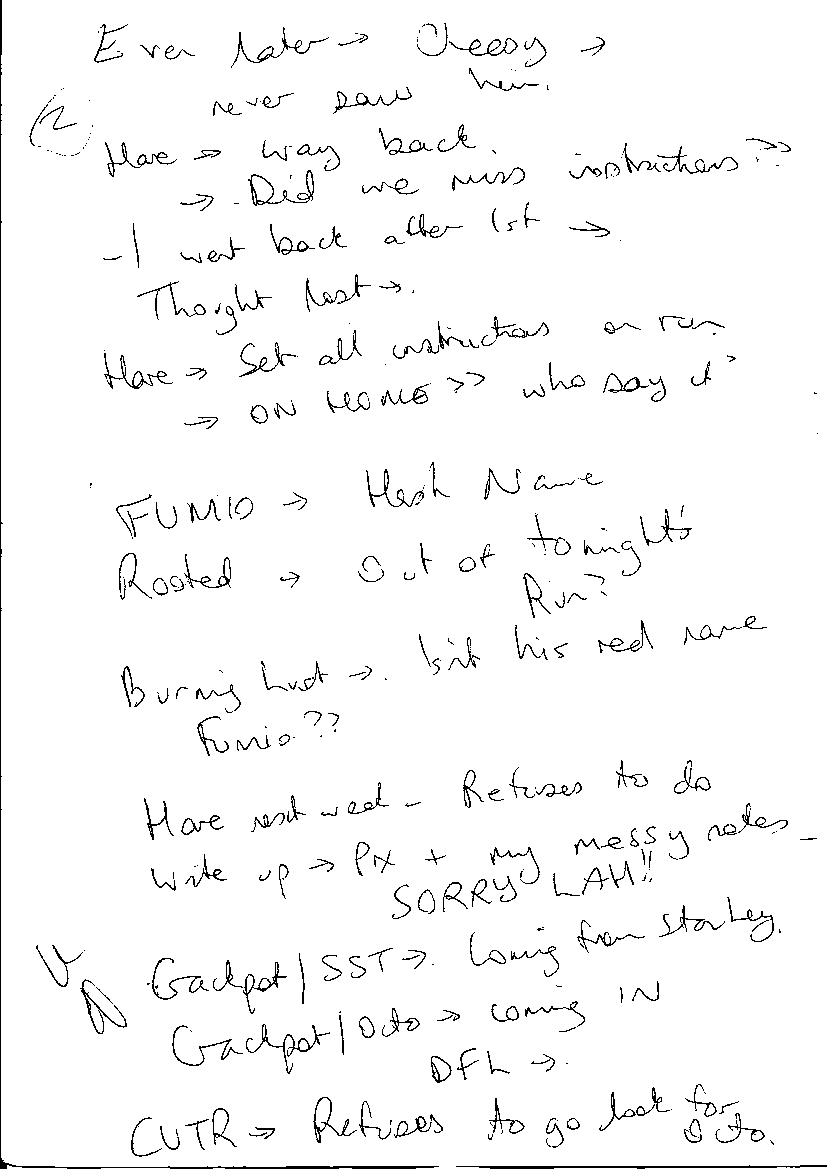 Even later → Cheesy →
never saw him.
②
Hare → way back.
→ Did we miss instructions??
- I went back after 1st →
Thoght lost →.
Hare → Set all instructions on run
→ ON HOME >> who say it?
FUMIO → Hash Name
Rooted → Out of tonight's
Run?
Burning → Isn't his real name
Fumio??
Hare next week - Refuses to do
write up → + my messy notes -
SORRY LAH!!
Gackpot / SST → Coming from Stanley.
Gackpot / Octo → coming IN
DFL →.
CUTR → Refuses to go look for
Octo.